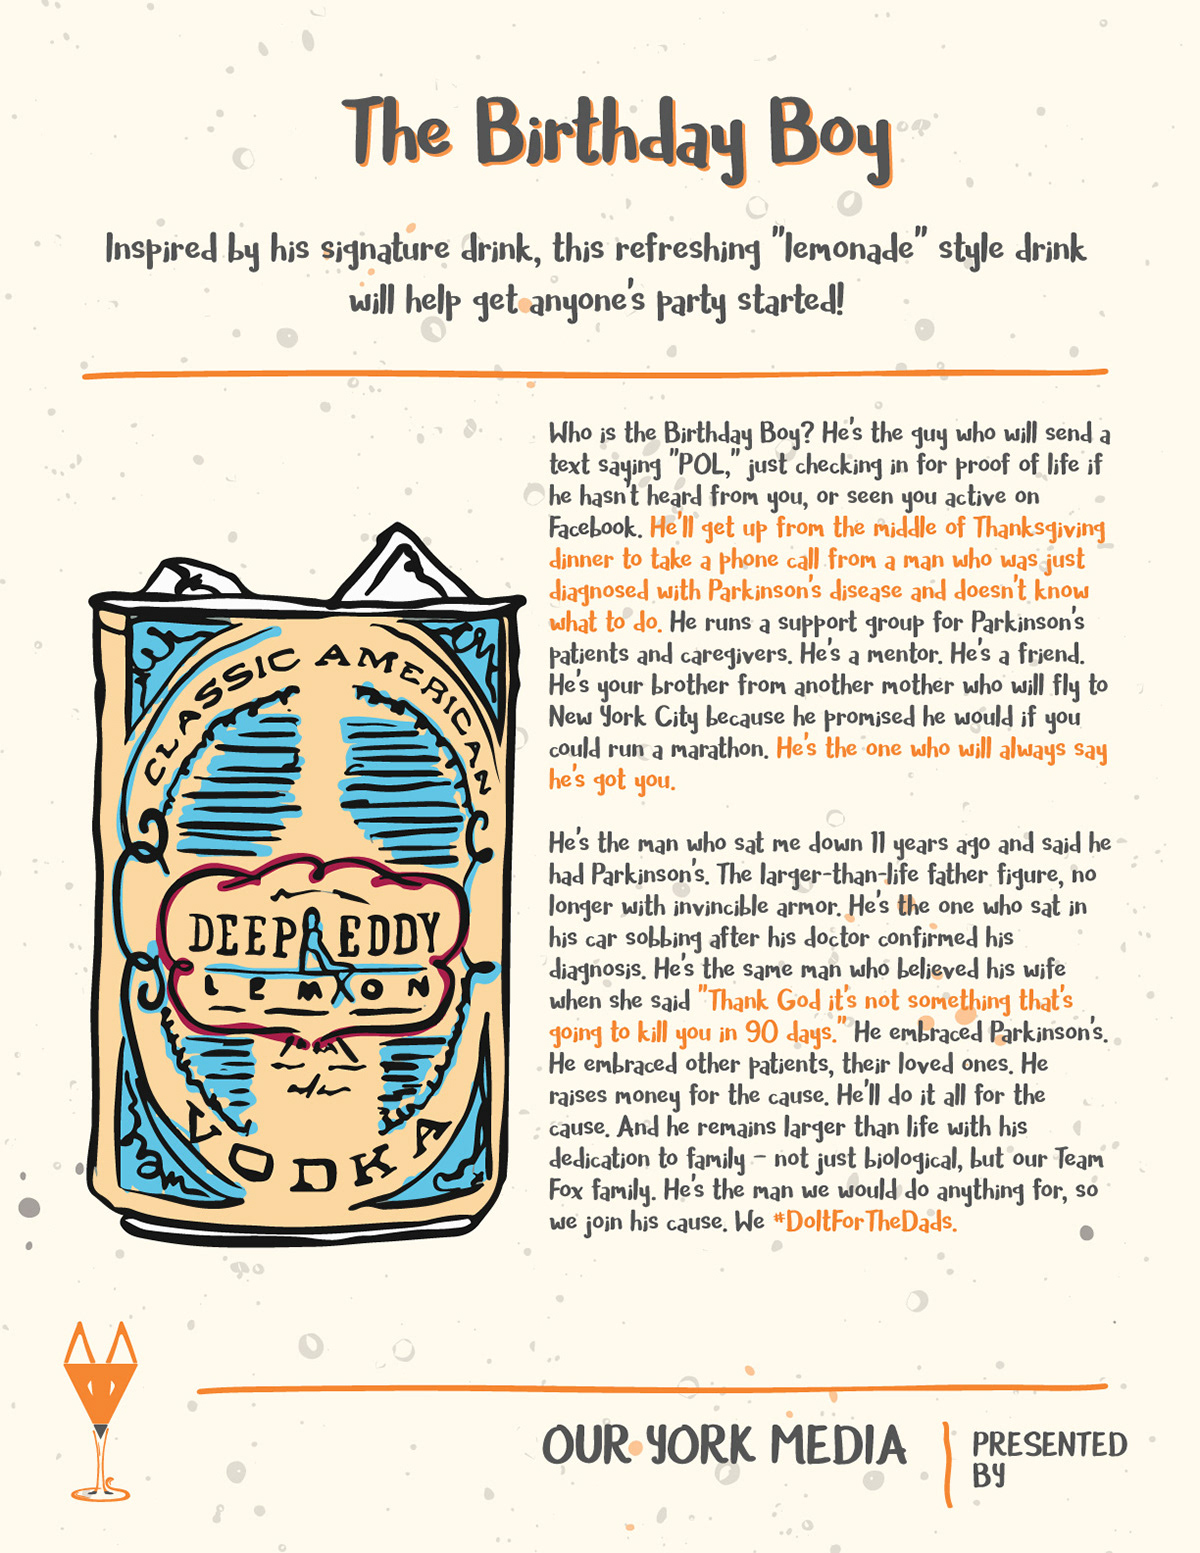 The Birthday Boy
Inspired by his signature drink, this refreshing "lemonade" style drink
will help get anyone's party started!
Who is the Birthday Boy? He's the guy who will send a
text saying "POL," just checking in for proof of life if
he hasn't heard from you, or seen you active on
Facebook. He'll get up from the middle of Thanksgiving
dinner to take a phone call from a man who was just
diagnosed with Parkinson's disease and doesn't know
what to do. He runs a support group for Parkinson's
patients and caregivers. He's a mentor. He's a friend.
He's your brother from another mother who will fly to
New York City because he promised he would if you
could run a marathon. He's the one who will always say
he's got you.
He's the man who sat me down 11 years ago and said he
had Parkinson's. The larger-than-life father figure, no
longer with invincible armor. He's the one who sat in
his car sobbing after his doctor confirmed his
diagnosis. He's the same man who believed his wife
when she said "Thank God it's not something that's
going to kill you in 90 days." He embraced Parkinson's.
He embraced other patients, their loved ones. He
raises money for the cause. He'll do it all for the
cause. And he remains larger than life with his
dedication to family – not just biological, but our Team
Fox family. He's the man we would do anything for, so
we join his cause. We #DoItForTheDads.
CLASSIC AMERICAN
DEEP EDDY
LEMON
VODKA
OUR YORK MEDIA
PRESENTED
BY